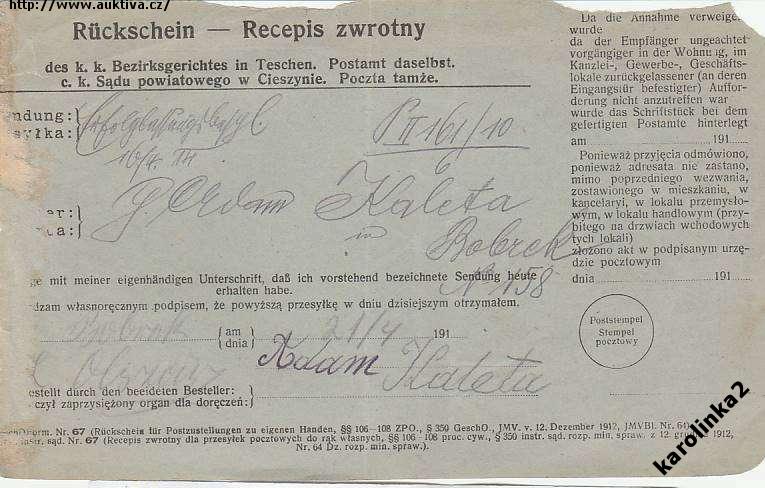 http://www.auktiva.cz/
Rückschein — Recepis zwrotny
des k. k. Bezirksgerichtes in Teschen. Postamt daselbst.
c. k. Sądu powiatowego w Cieszynie. Poczta tamże.
endung:
syłka:
P II 161/10
16/4 14
er:
ta:
Adam Kaleta
in
Bobrek
No 158
ge mit meiner eigenhändigen Unterschrift, daß ich vorstehend bezeichnete Sendung heute
erhalten habe.
dzam własnoręcznym podpisem, że powyższą przesyłkę w dniu dzisiejszym otrzymałem.
Bobrek
am
dnia
21/4 191
Adam Kaleta
estellt durch den beeideten Besteller:
czył zaprzysiężony organ dla doręczeń:
orm. Nr. 67 (Rückschein für Postzustellungen zu eigenen Handen, §§ 106—108 ZPO., § 350 GeschO., JMV. v. 12. Dezember 1912, JMVBl. Nr. 64)
instr. sąd. Nr. 67 (Recepis zwrotny dla przesyłek pocztowych do rąk własnych, §§ 106—108 proc. cyw., § 350 instr. sąd. rozp. min. spraw. z 12. gr 1912,
Nr. 64 Dz. rozp. min. spraw.).
Da die Annahme verweiger
wurde
da der Empfänger ungeachtet
vorgängiger in der Wohnung, im
Kanzlei-, Gewerbe-, Geschäfts-
lokale zurückgelassener (an deren
Eingangstür befestigter) Auffor-
derung nicht anzutreffen war
wurde das Schriftstück bei dem
gefertigten Postamte hinterlegt
am 191
Ponieważ przyjęcia odmówiono,
ponieważ adresata nie zastano,
mimo poprzedniego wezwania,
zostawionego w mieszkaniu, w
kancelaryi, w lokalu przemysło-
wym, w lokalu handlowym (przy-
bitego na drzwiach wchodowych
tych lokali)
złożono akt w podpisanym urzę-
dzie pocztowym
dnia 191
Poststempel
Stempel
pocztowy
karolinka2